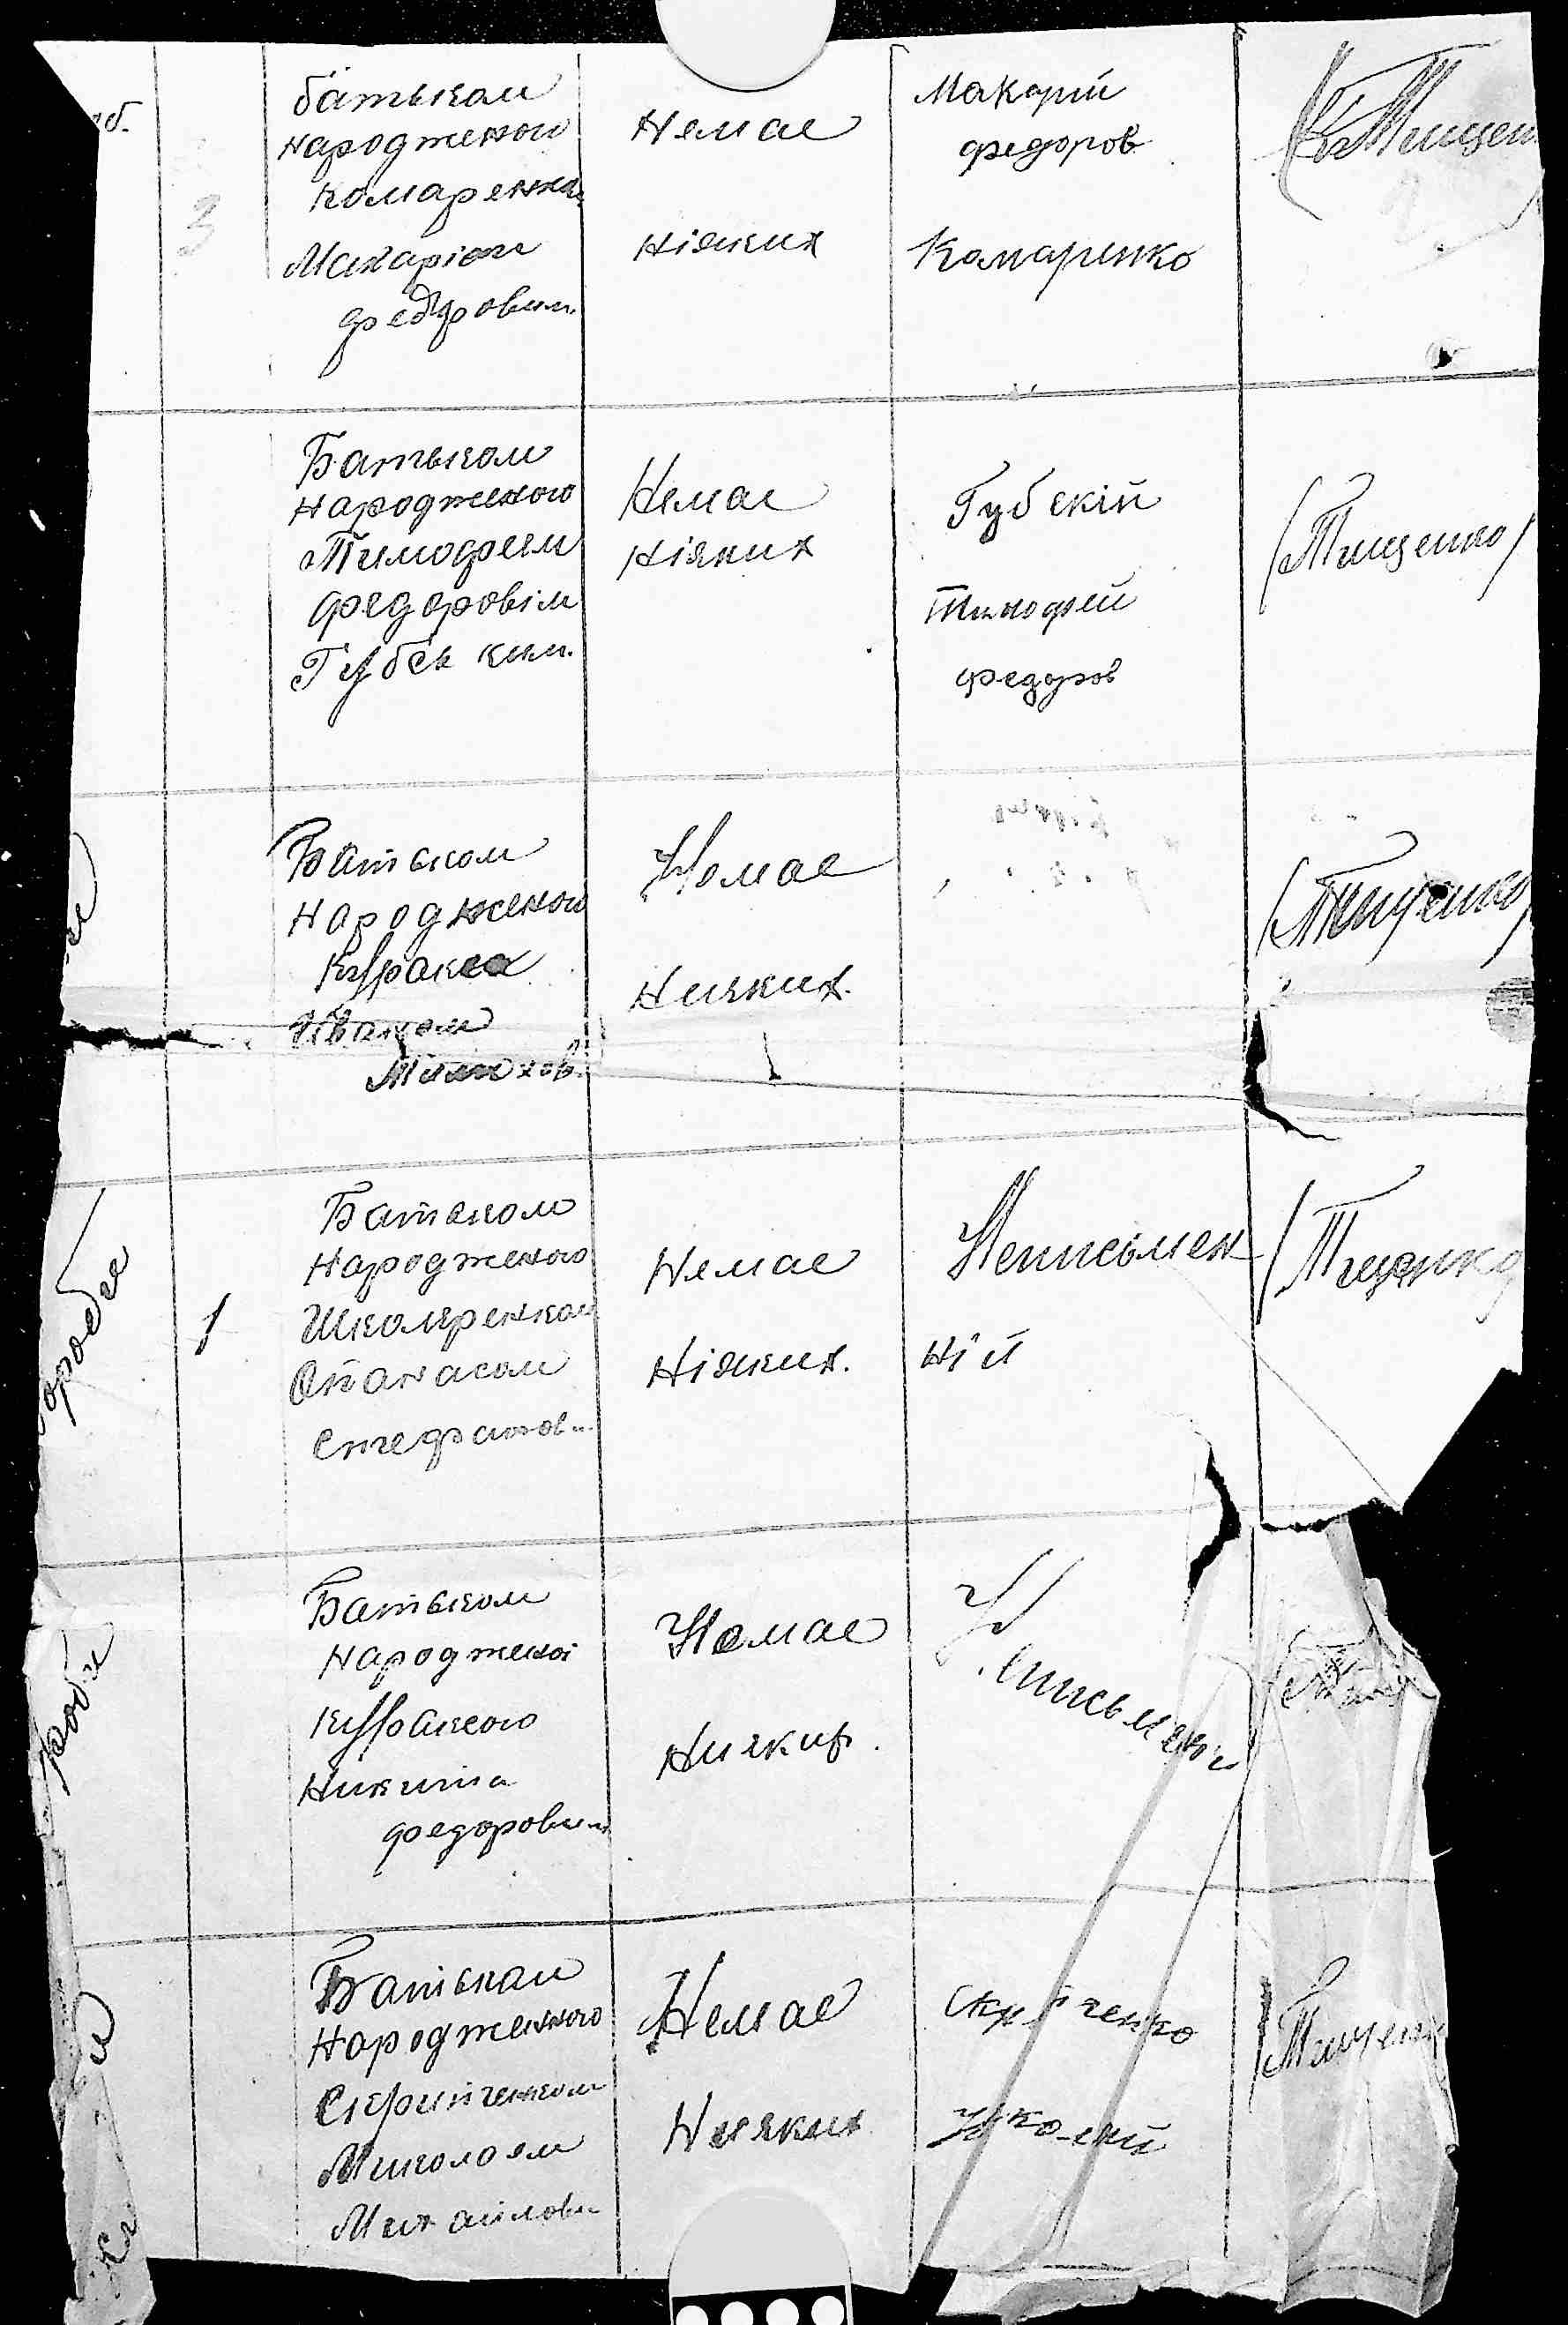 об.
3
батьком
народженого
Комаренком
Макаріем
федоровим.
Немае
Ніяких
Макарій
федоров
Комаринко
Тищен
Батьком
Народженого
Тимофеем
федоровім
Губск ким.
Немае
Ніяких
Губскій
Тимофей
федоров
(Тищенко)
Батьком
Народженого
Кураксa
Иваном
Немае
Нияких.
(Тищенко)
1
Батьком
Народженого
Школяренком
Опанасом
Стефанов
Немае
Ніяких.
Неписьмен
ній
(Тищенко
Батьком
Народженоі
Никита
федорович
Немае
Нияких.
Неписьмен
Батьком
Народженного
Скрипченком
Миколоем
Михайлови
Немае
Нияких
Скрипченко
Николай
(Тищенк